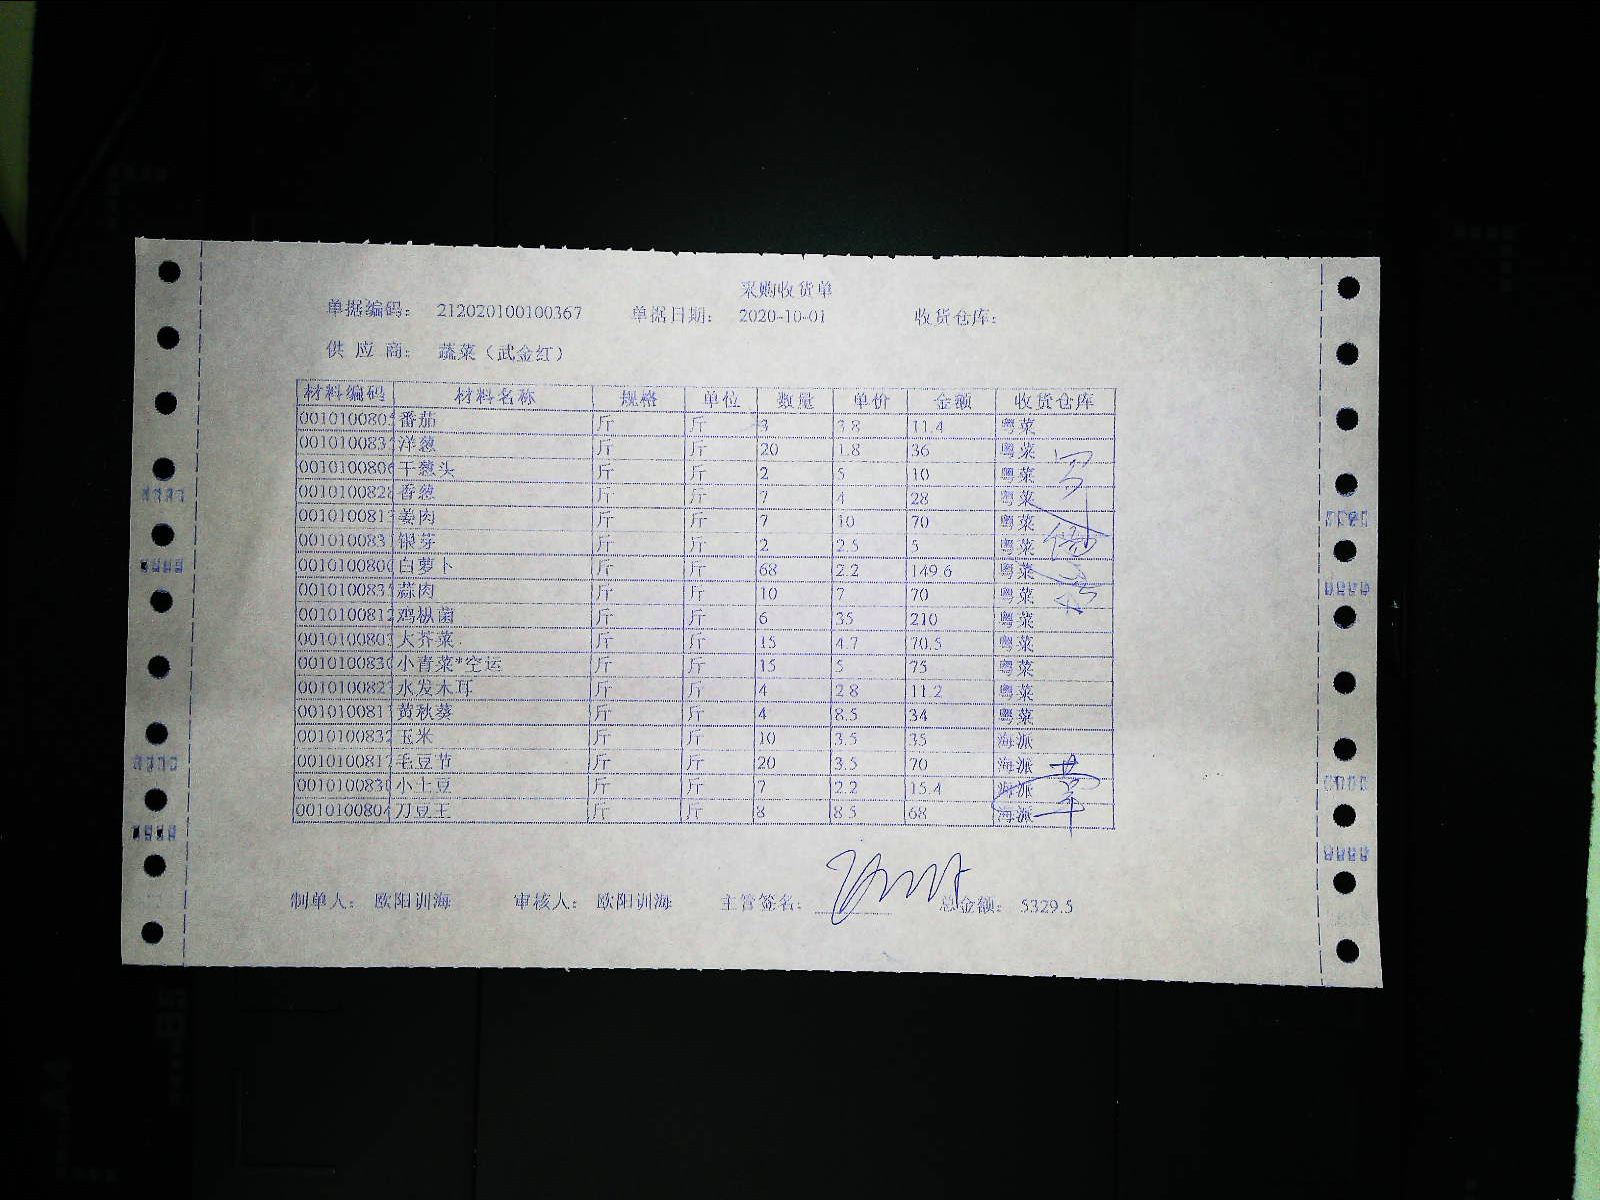 采购收货单
单据编码： 212020100100367 单据日期： 2020-10-01 收货仓库：
供 应 商： 蔬菜（武金红）
材料编码 材料名称 规格 单位 数量 单价 金额 收货仓库
001010080 番茄 斤 斤 3 3.8 11.4 粤菜
001010083 洋葱 斤 斤 20 1.8 36 粤菜
0010100806 干葱头 斤 斤 2 5 10 粤菜
0010100828 香葱 斤 斤 7 4 28 粤菜
001010081 姜肉 斤 斤 7 10 70 粤菜
001010083 银芽 斤 斤 2 2.5 5 粤菜
001010080 白萝卜 斤 斤 68 2.2 149.6 粤菜
001010083 蒜肉 斤 斤 10 7 70 粤菜
0010100812 鸡枞菌 斤 斤 6 35 210 粤菜
001010080 大芥菜 斤 斤 15 4.7 70.5 粤菜
001010083 小青菜*空运 斤 斤 15 5 75 粤菜
001010082 水发木耳 斤 斤 4 2.8 11.2 粤菜
001010081 黄秋葵 斤 斤 4 8.5 34 粤菜
0010100832 玉米 斤 斤 10 3.5 35 海派
001010081 毛豆节 斤 斤 20 3.5 70 海派
001010083 小土豆 斤 斤 7 2.2 15.4 海派
0010100804 刀豆王 斤 斤 8 8.5 68 海派
制单人： 欧阳训海 审核人： 欧阳训海 主管签名： 总金额： 5329.5